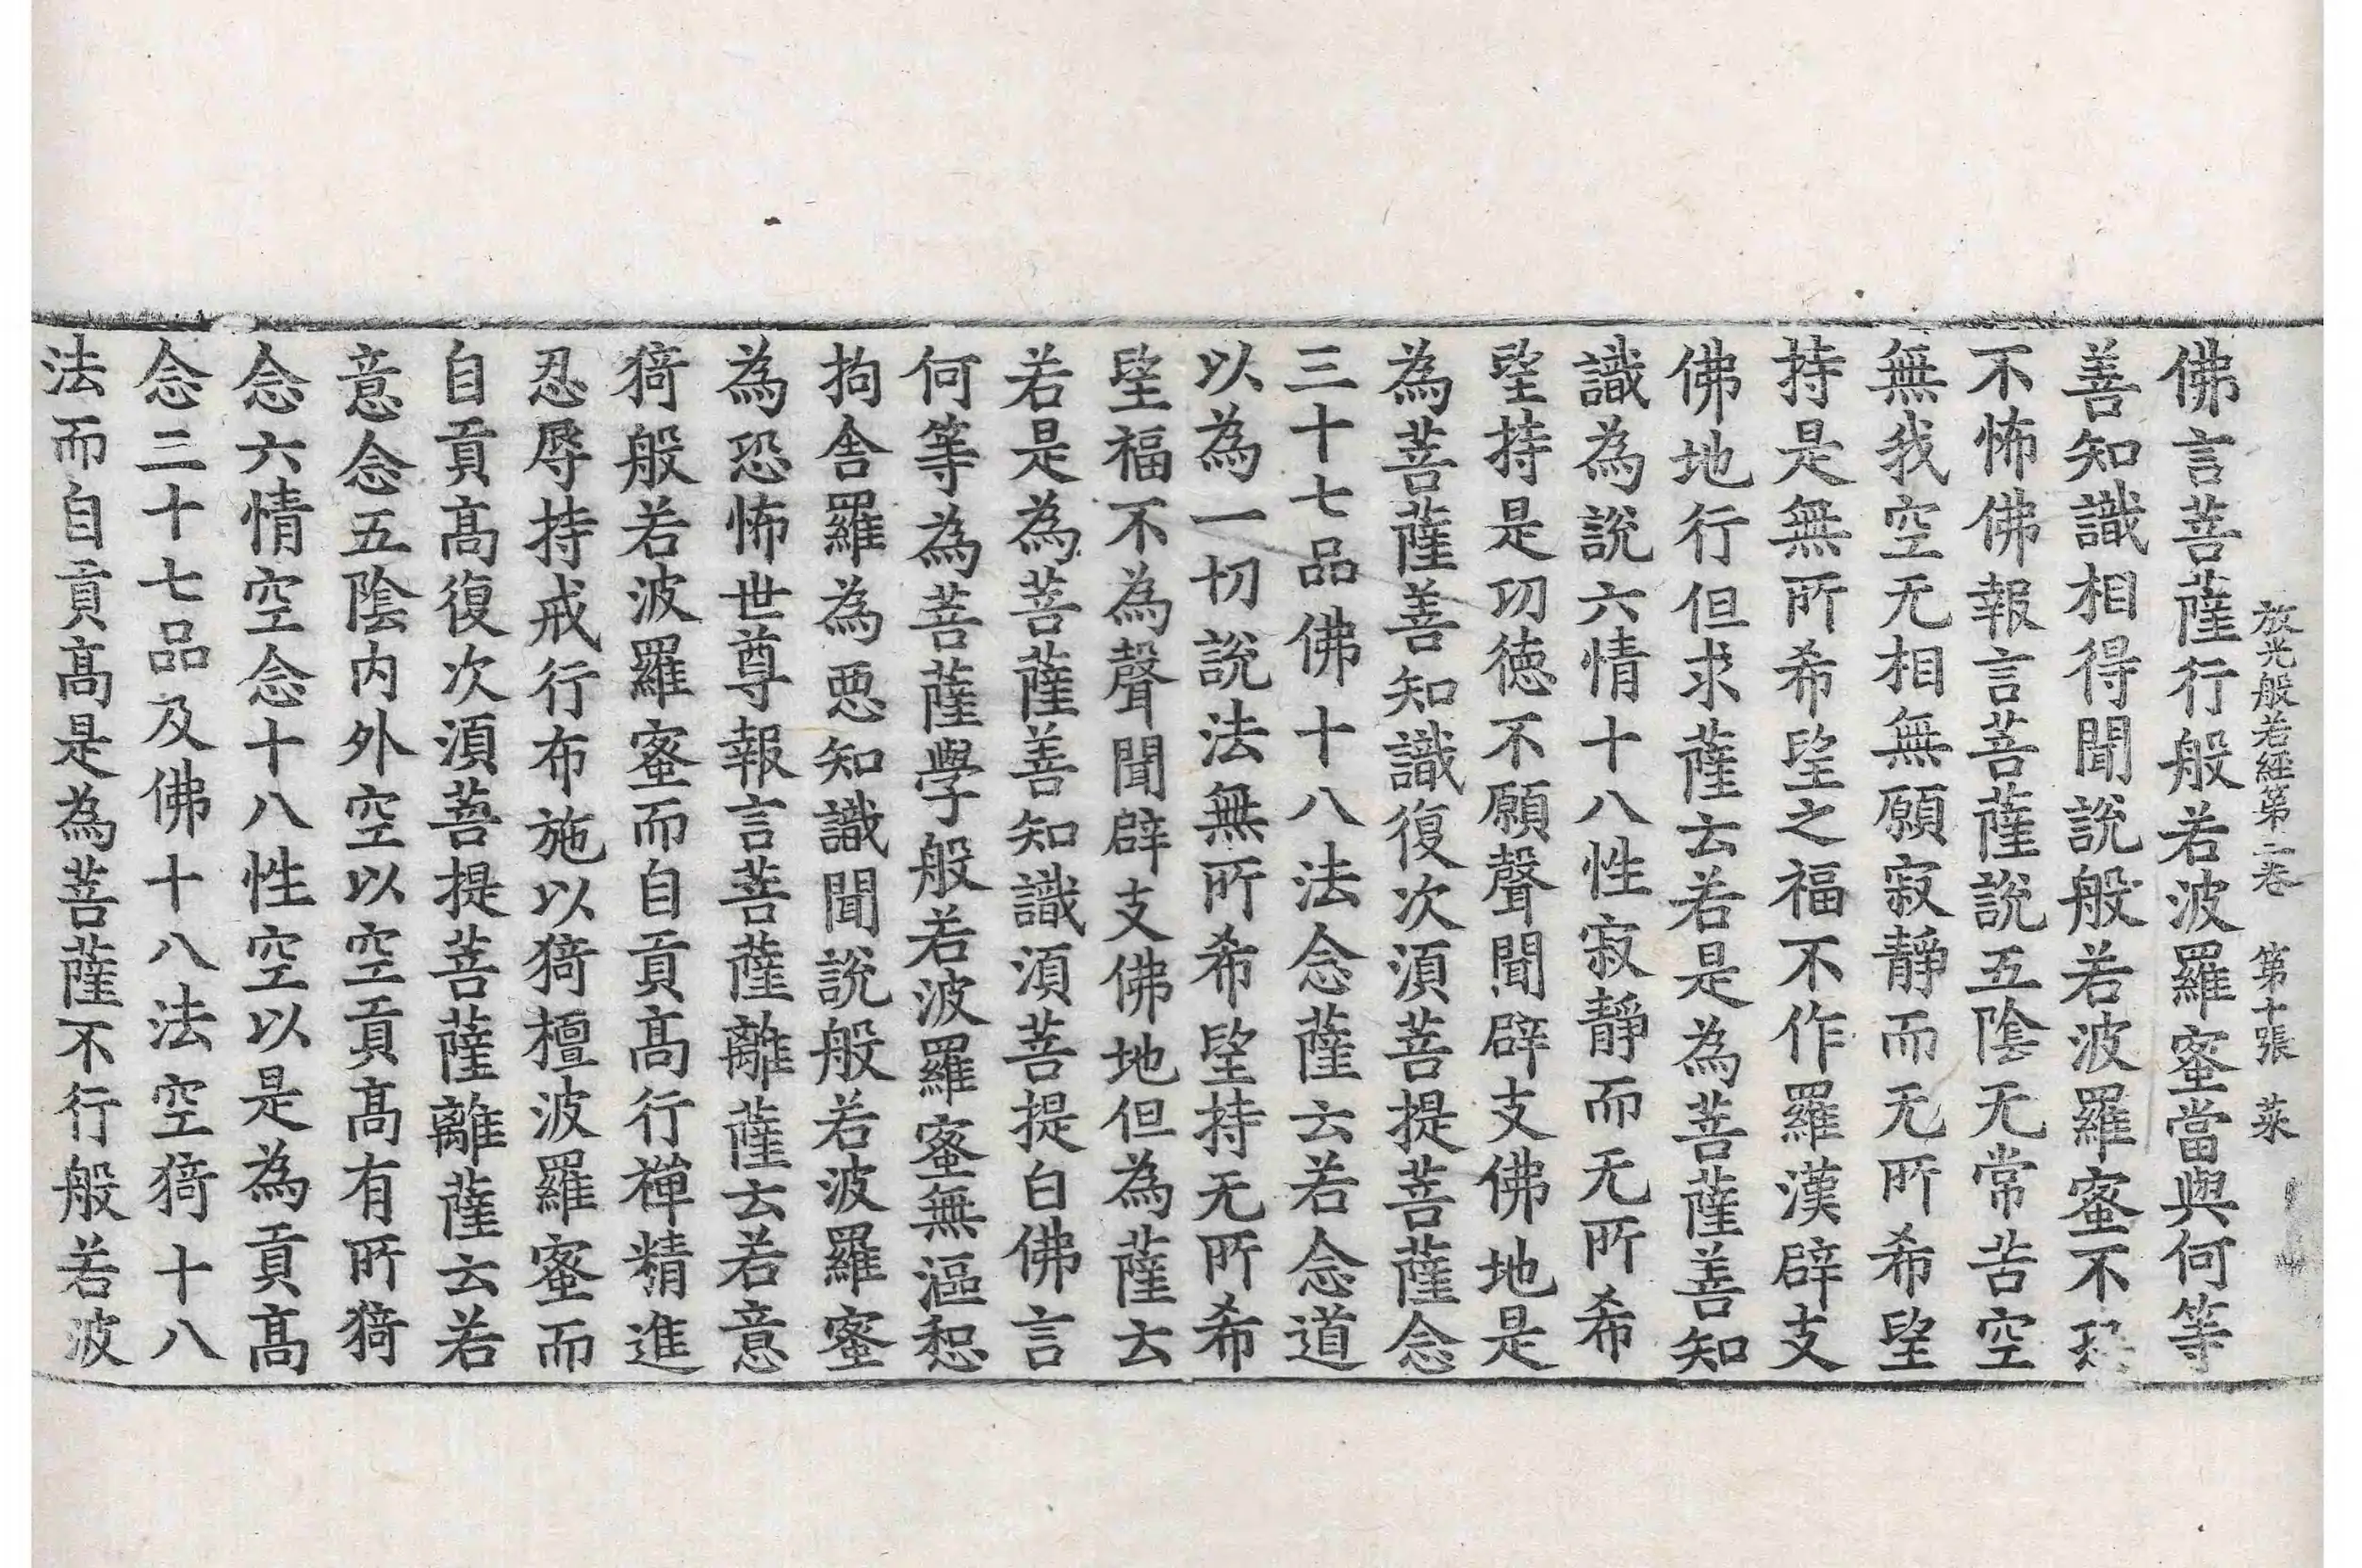 放光般若經第二卷　第十張　菜
佛言菩薩行般若波羅蜜當與何等
善知識相得聞說般若波羅蜜不恐
不怖佛報言菩薩說五陰无常苦空
無我空无相無願寂靜而无所希望
持是無所希望之福不作羅漢辟支
佛地行但求薩云若是為菩薩善知
識為說六情十八性寂靜而无所希
望持是功德不願聲聞辟支佛地是
為菩薩善知識復次須菩提菩薩念
三十七品佛十八法念薩云若念道
以為一切說法無所希望持无所希
望福不為聲聞辟支佛地但為薩云
若是為菩薩善知識須菩提白佛言
何等為菩薩學般若波羅蜜無漚惒
拘舍羅為惡知識聞說般若波羅蜜
為恐怖世尊報言菩薩離薩云若意
猗般若波羅蜜而自貢高行禪精進
忍辱持戒行布施以猗檀波羅蜜而
自貢高復次須菩提菩薩離薩云若
意念五陰内外空以空貢高有所猗
念六情空念十八性空以是為貢高
念三十七品及佛十八法空猗十八
法而自貢高是為菩薩不行般若波